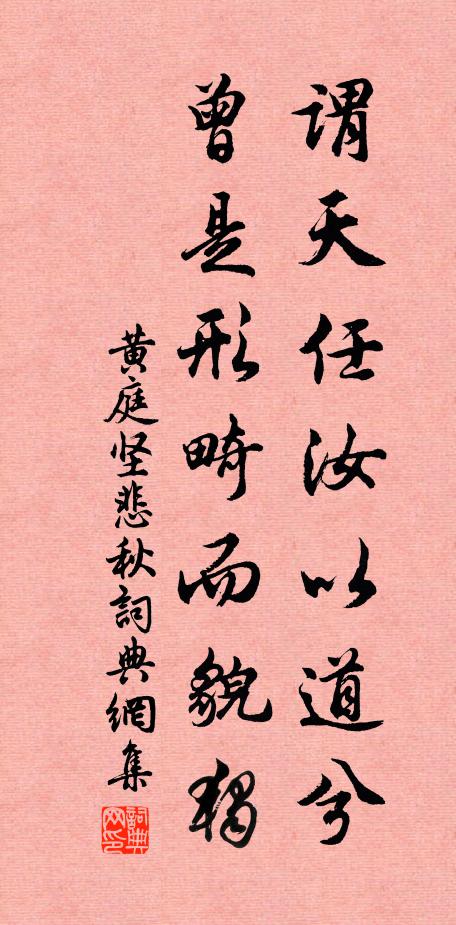 谓天任汝以道兮
曾是形畸而貌独
黄庭坚悲秋詞典網集
詞典网印